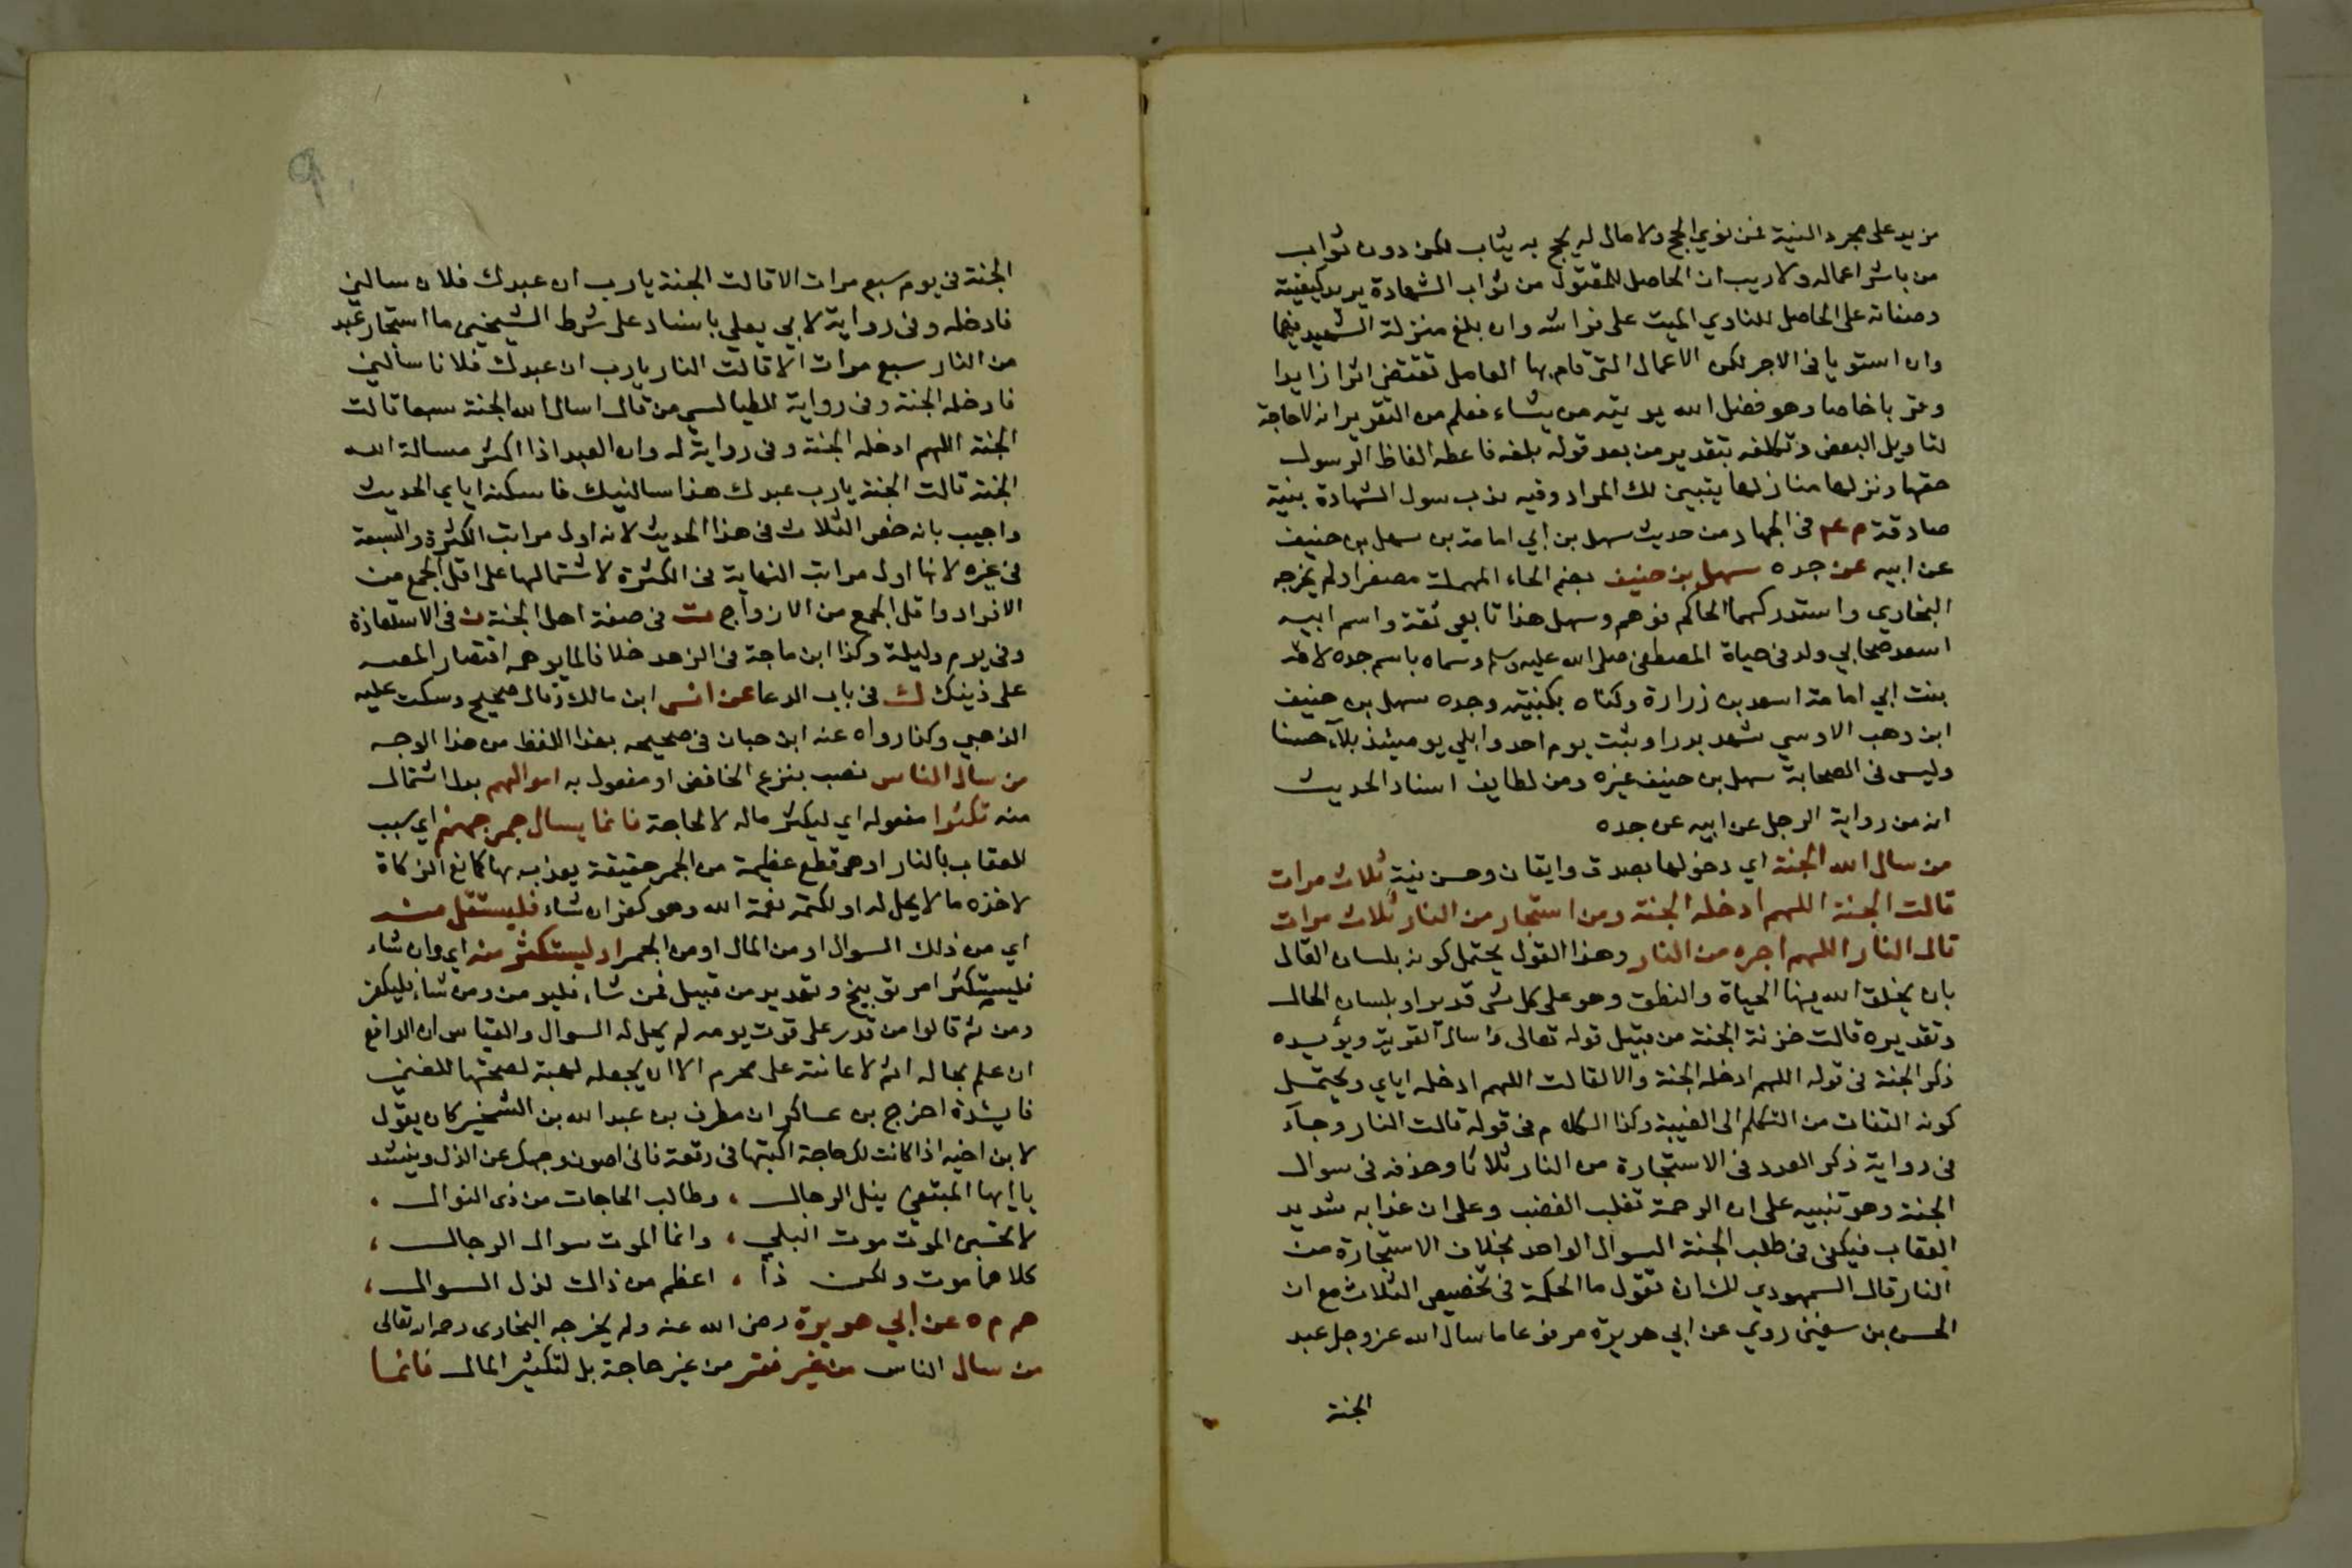 مزيد على مجرد النية فمن نوي الحج ولا مال له يحج به يثاب لكن دون ثواب
من باشر اعماله ولا ريب ان الحاصل للمقتول من ثواب الشهادة يريد كيفيته
وصفاته على الحاصل للناوي الميت على فراشه وان بلغ منزلة الشهيد فهما
وان استويا فى الاجر لكن الاعمال التى قام بها العامل تقتضى اثرا زايدا
وقربا خاصا وهو فضل الله يوتيه من يشاء فعلم من التقرير انه لا حاجة
لتاويل البعض وتكلفه بتقدير من بعد قوله بلغه فاعطه الفاظ الرسول
حقها ونزلها منازلها يتبين لك المراد وفيه ندب سول الشهادة بنية
صادقة م عم فى الجهاد من حديث سهل بن ابي امامة بن سهل بن حنيف
عن ابيه عن جده سهل بن حنيف بضم الحاء المهملة مصغرا ولم يخرجه
البخاري واستدركهما الحاكم فوهم وسهل هذا تابعي ثقة واسم ابيه
اسعد صحابي ولد فى حياة المصطفى صلى الله عليه وسلم وسماه باسم جده لامه
بنت ابي امامة اسعد بن زرارة وكناه بكنيته وجده سهل بن حنيف
ابن وهب الاوسي شهد بدرا وثبت يوم احد وابلي يوميئذ بلآء حسنا
وليس فى الصحابة سهل بن حنيف غيره ومن لطايف اسناد الحديث
انه من رواية الرجل عن ابيه عن جده
من سال الله الجنة اي دخولها بصدق وايقان وحسن نية ثلاث مرات
قالت الجنة اللهم ادخله الجنة ومن استجار من النار ثلاث مرات
قالت النار اللهم اجره من النار وهذا القول يحتمل كونه بلسان القال
بان يخلق الله فيها الحياة والنطق وهو على كل شى قدير او بلسان الحال
وتقديره قالت خزنة الجنة من قبيل قوله تعالى واسال القرية ويؤيده
ذكر الجنة فى قوله اللهم ادخله الجنة والا لقالت اللهم ادخله اياي ويحتمل
كونه التفات من التكلم الى الغيبة وكذا الكلام فى قوله قالت النار وجآء
فى رواية ذكر العدد فى الاستجارة من النار ثلاثا وحذفه فى سوال
الجنة وهو تنبيه على ان الرحمة تغلب الغضب وعلى ان عذابه شديد
العقاب فيكفى فى طلب الجنة السوال الواحد بخلاف الاستجارة من
النار قال السمهودي لك ان تقول ما الحكمة فى تخصيص الثلاث مع ان
الحسن بن سفين روي عن ابي هريرة مرفوعا ما سال الله عز وجل عبد
الجنة
الجنة فى يوم سبع مرات الا قالت الجنة يا رب ان عبدك فلان سالني
فادخله وفى رواية لابي يعلي باسناد على شرط الشيخين ما استجار عبد
من النار سبع مرات الا قالت النار يا رب ان عبدك فلانا سألني
فادخله الجنة وفى رواية للطيالسي من قال اسال الله الجنة سبعا قالت
الجنة اللهم ادخله الجنة وفى رواية له وان العبد اذا اكثر مسالة الله
الجنة قالت الجنة يا رب عبدك هذا سالنيك فاسكنه اياي الحديث
واجيب بانه خص الثلاث فى هذا الحديث لانه اول مراتب الكثرة والسبعة
فى غيره لانها اول مراتب النهاية فى الكثرة لاشتمالها على اقل الجمع من
الافراد واقل الجمع من الازواج ت فى صفة اهل الجنة ن فى الاستعاذة
وفى يوم وليلة وكذا ابن ماجة فى الزهد خلافا لما يوهمه اقتصار المصه
على ذينك ك فى باب الدعا عن انس ابن مالك وقال صحيح وسكت عليه
الذهبي وكذا رواه عنه ابن حبان فى صحيحه بهذا اللفظ من هذا الوجه
من سال الناس نصب بنزع الخافض او مفعول به اموالهم بدل اشتمال
منه تكثرا مفعوله اي ليكثر ماله لا لحاجة فانما يسال جمر جهنم اي سبب
للعقاب بالنار او هى قطع عظيمة من الجمر حقيقة يعذب بها كمانع الزكاة
لاخذه ما لا يحل له او لكتمه نعمة الله وهو كفران شاء فليستقل منه
اي من ذلك السوال او من المال او من الجمر او ليستكثر منه اي وان شاء
فليستكثر امر توبيخ وتهديد من قبيل فمن شاء فليومن ومن شاء فليكفر
ومن ثم قالوا من قدر على قوت يومه لم يحل له السوال والقياس ان الدافع
ان علم بحاله اثم لاعانته على محرم الا ان يجعله لهبة لصحتها للغني
فايشدة اخرج بن عساكر ان مطرف بن عبد الله بن الشخير كان يقول
لابن اخيه اذا كانت لك حاجة اكتبها فى رقعة فانى اصون وجهك عن الذل وينشد
يا ايها المبتغي ينل الرجال ، وطالب الحاجات من ذى النوال ،
لا تحسبن الموت موت البلي ، وانما الموت سوال الرجال ،
كلاهما موت ولكن ذا ، اعظم من ذاك لذل السوال ،
هم م ه عن ابي هريرة رضى الله عنه ولم يخرجه البخارى رحمه الله تعالى
من سال الناس من غير فقر من غير حاجة بل لتكثير المال فانما